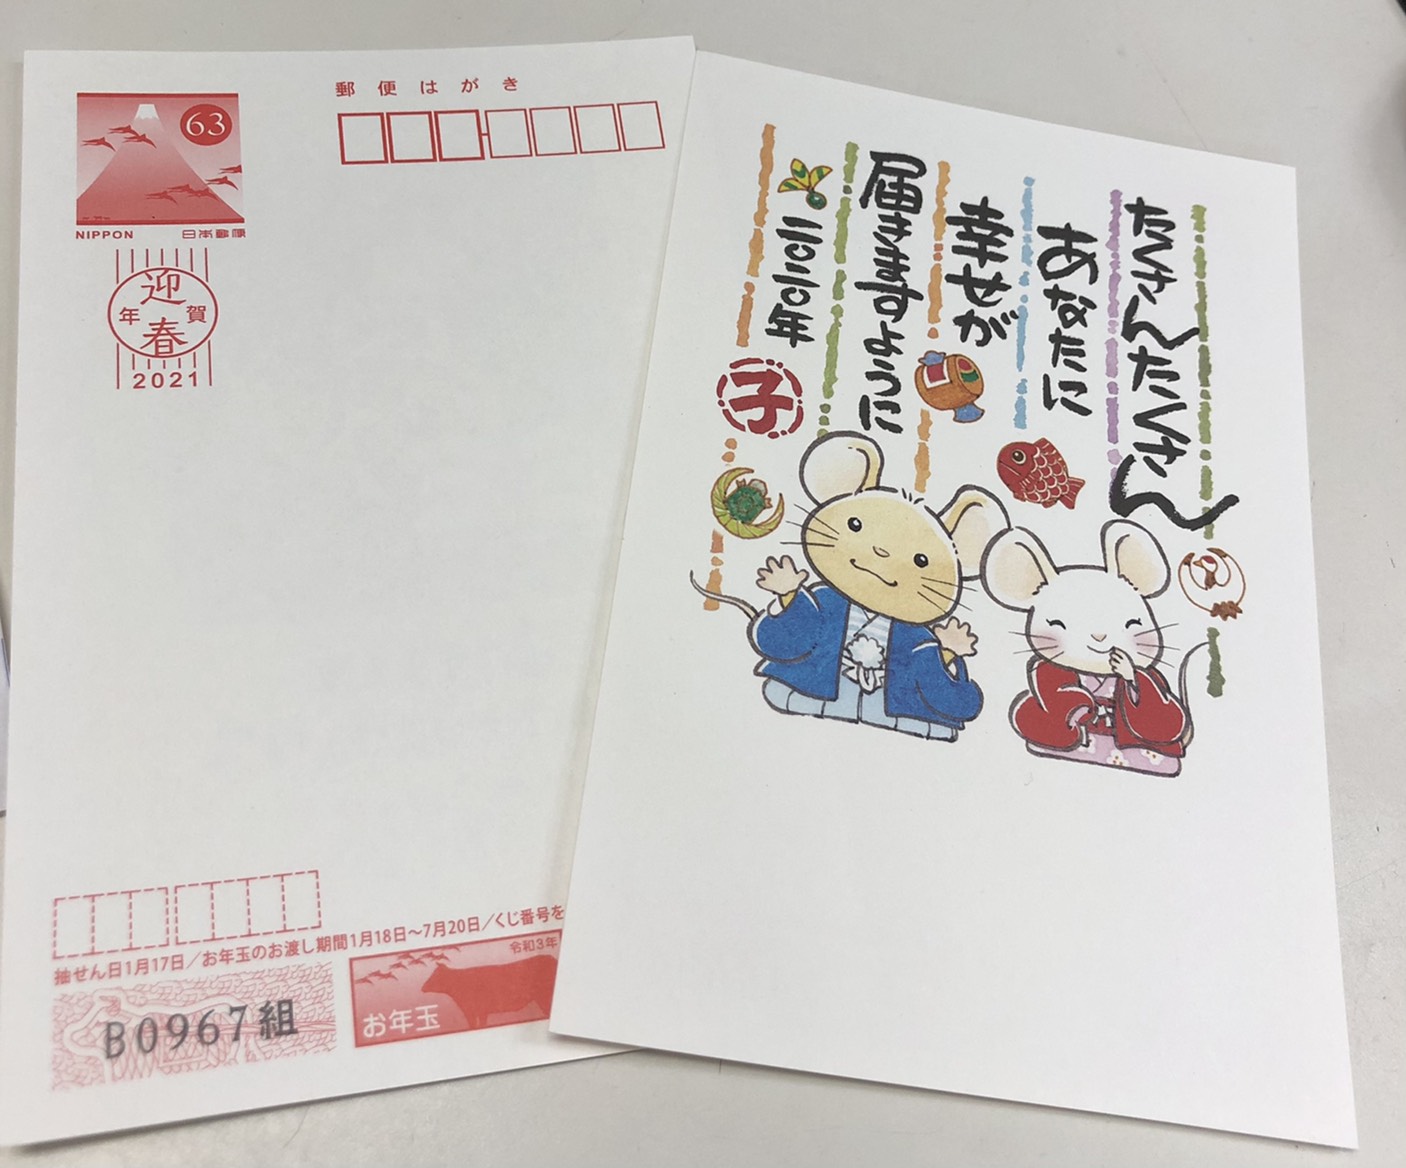 郵便はがき
63
NIPPON 日本郵便
迎春
年賀
2021
抽せん日1月17日／お年玉のお渡し期間1月18日〜7月20日／くじ番号を
B0967組
令和3年
お年玉
たくさんたくさん
あなたに
幸せが
届きますように
二〇二〇年
子